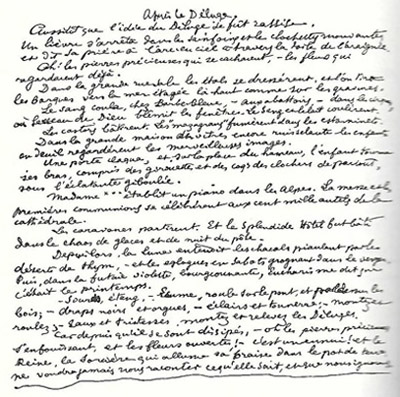 Après le Déluge
Aussitôt que l'idée du Déluge se fut rassise,
Un lièvre s'arrêta dans les sainfoins et les clochettes mouvantes,
et dit sa prière à l'arc-en-ciel à travers la toile de l'araignée.
Oh! les pierres précieuses qui se cachaient, – les fleurs qui
regardaient déjà.
Dans la grande rue sale les étals se dressèrent, et l'on tira
les barques vers la mer étagée là haut comme sur les gravures.
Le sang coula, chez Barbe-bleue, – aux abattoirs, – dans les cirques,
où le sceau de Dieu blêmit les fenêtres. Le sang et le lait coulèrent.
Les castors bâtirent. Les mazagrans fumèrent dans les estaminets.
Dans la grande maison de vitres encore ruisselante les enfants
en deuil regardèrent les merveilleuses images.
Une porte claqua, et sur la place du hameau, l'enfant tourna
ses bras, compris des girouettes et des coqs des clochers de partout,
sous l'éclatante giboulée.
Madame *** établit un piano dans les Alpes. La messe et les
premières communions se célébrèrent aux cent mille autels de la
cathédrale.
Les caravanes partirent. Et le Splendide Hôtel fut bâti
dans le chaos de glaces et de nuit du pôle.
Depuis lors, la Lune entendit les chacals piaulant par les
déserts de thym, – et les églogues en sabots grognant dans le verger.
Puis, dans la futaie violette, bourgeonnante, Eucharis me dit que
c'était le printemps.
– Sourds, étang, – Écume, roule sur le pont, et par-dessus les
bois; – draps noirs et orgues, – éclairs et tonnerre; – montez et
roulez; – Eaux et tristesses, montez et relevez les Déluges.
Car depuis qu'ils se sont dissipés, – oh les pierres précieuses
s'enfouissant, et les fleurs ouvertes! – c'est un ennui! et la
Reine, la Sorcière qui allume sa braise dans le pot de terre,
ne voudra jamais nous raconter ce qu'elle sait, et que nous ignorons.